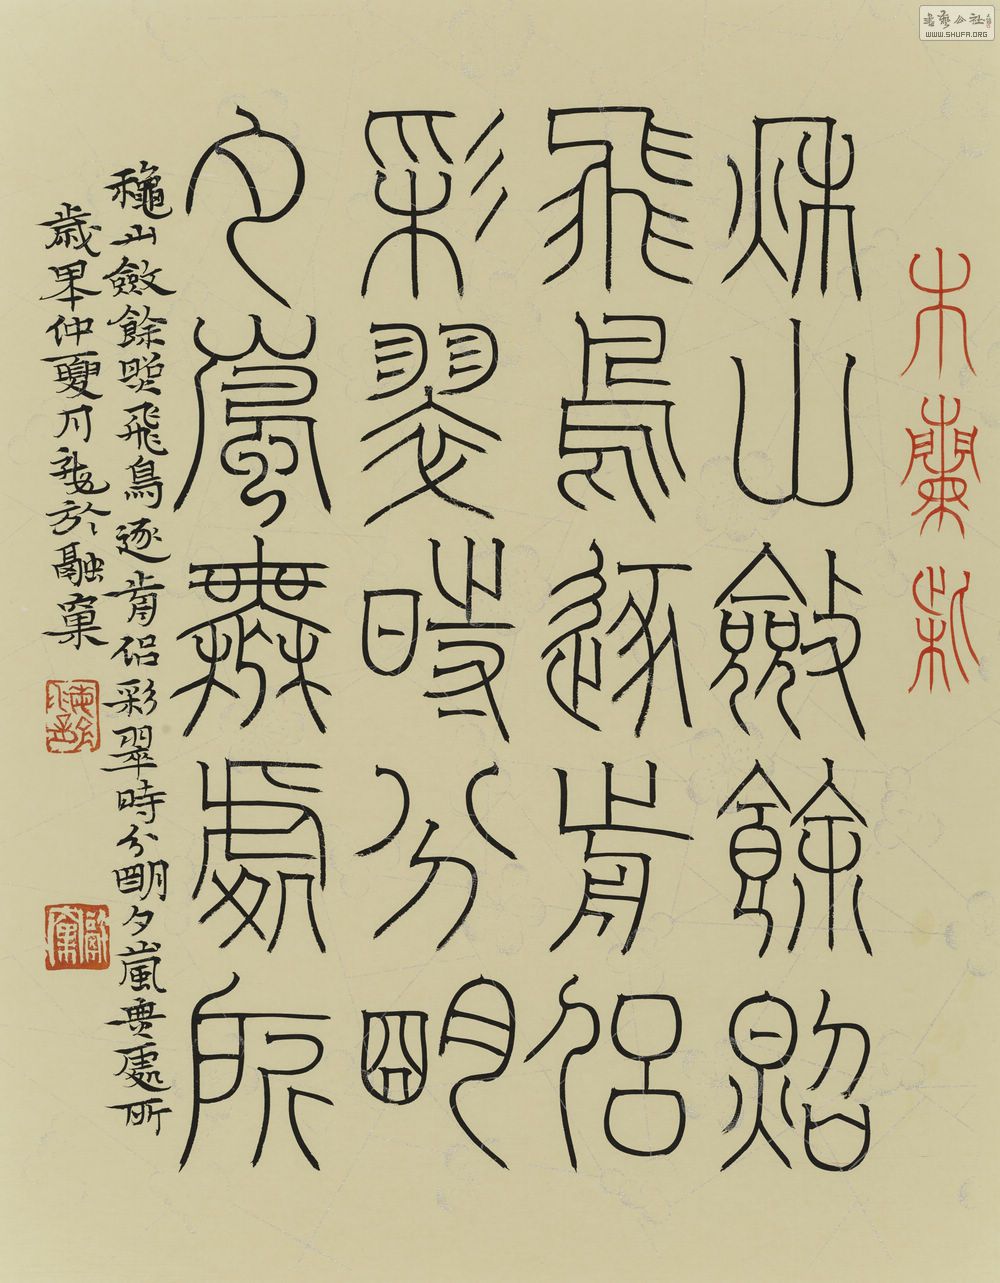 木蘭柴
秋山斂餘照
飛鳥逐前侶
彩翠時分明
夕嵐無處所
龝山斂餘照飛鳥逐前侶彩翠時分明夕嵐無處所
歲畢仲夏月 於融窠
書藝公社
WWW.SHUFA.ORG